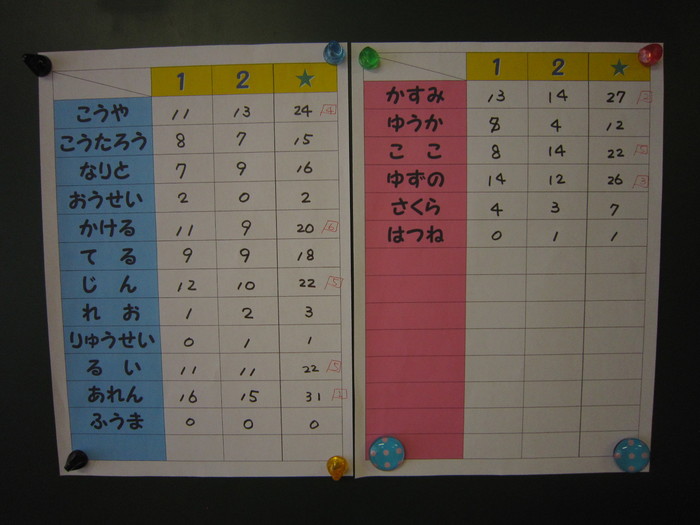 1 2 ★
こうや 11 13 24 4
こうたろう 8 7 15
なりと 7 9 16
おうせい 2 0 2
かける 11 9 20 6
てる 9 9 18
じん 12 10 22 5
れお 1 2 3
りゅうせい 0 1 1
るい 11 11 22 5
あれん 16 15 31 1
ふうま 0 0 0
1 2 ★
かすみ 13 14 27 2
ゆうか 8 4 12
ここ 8 14 22 5
ゆずの 14 12 26 3
さくら 4 3 7
はつね 0 1 1